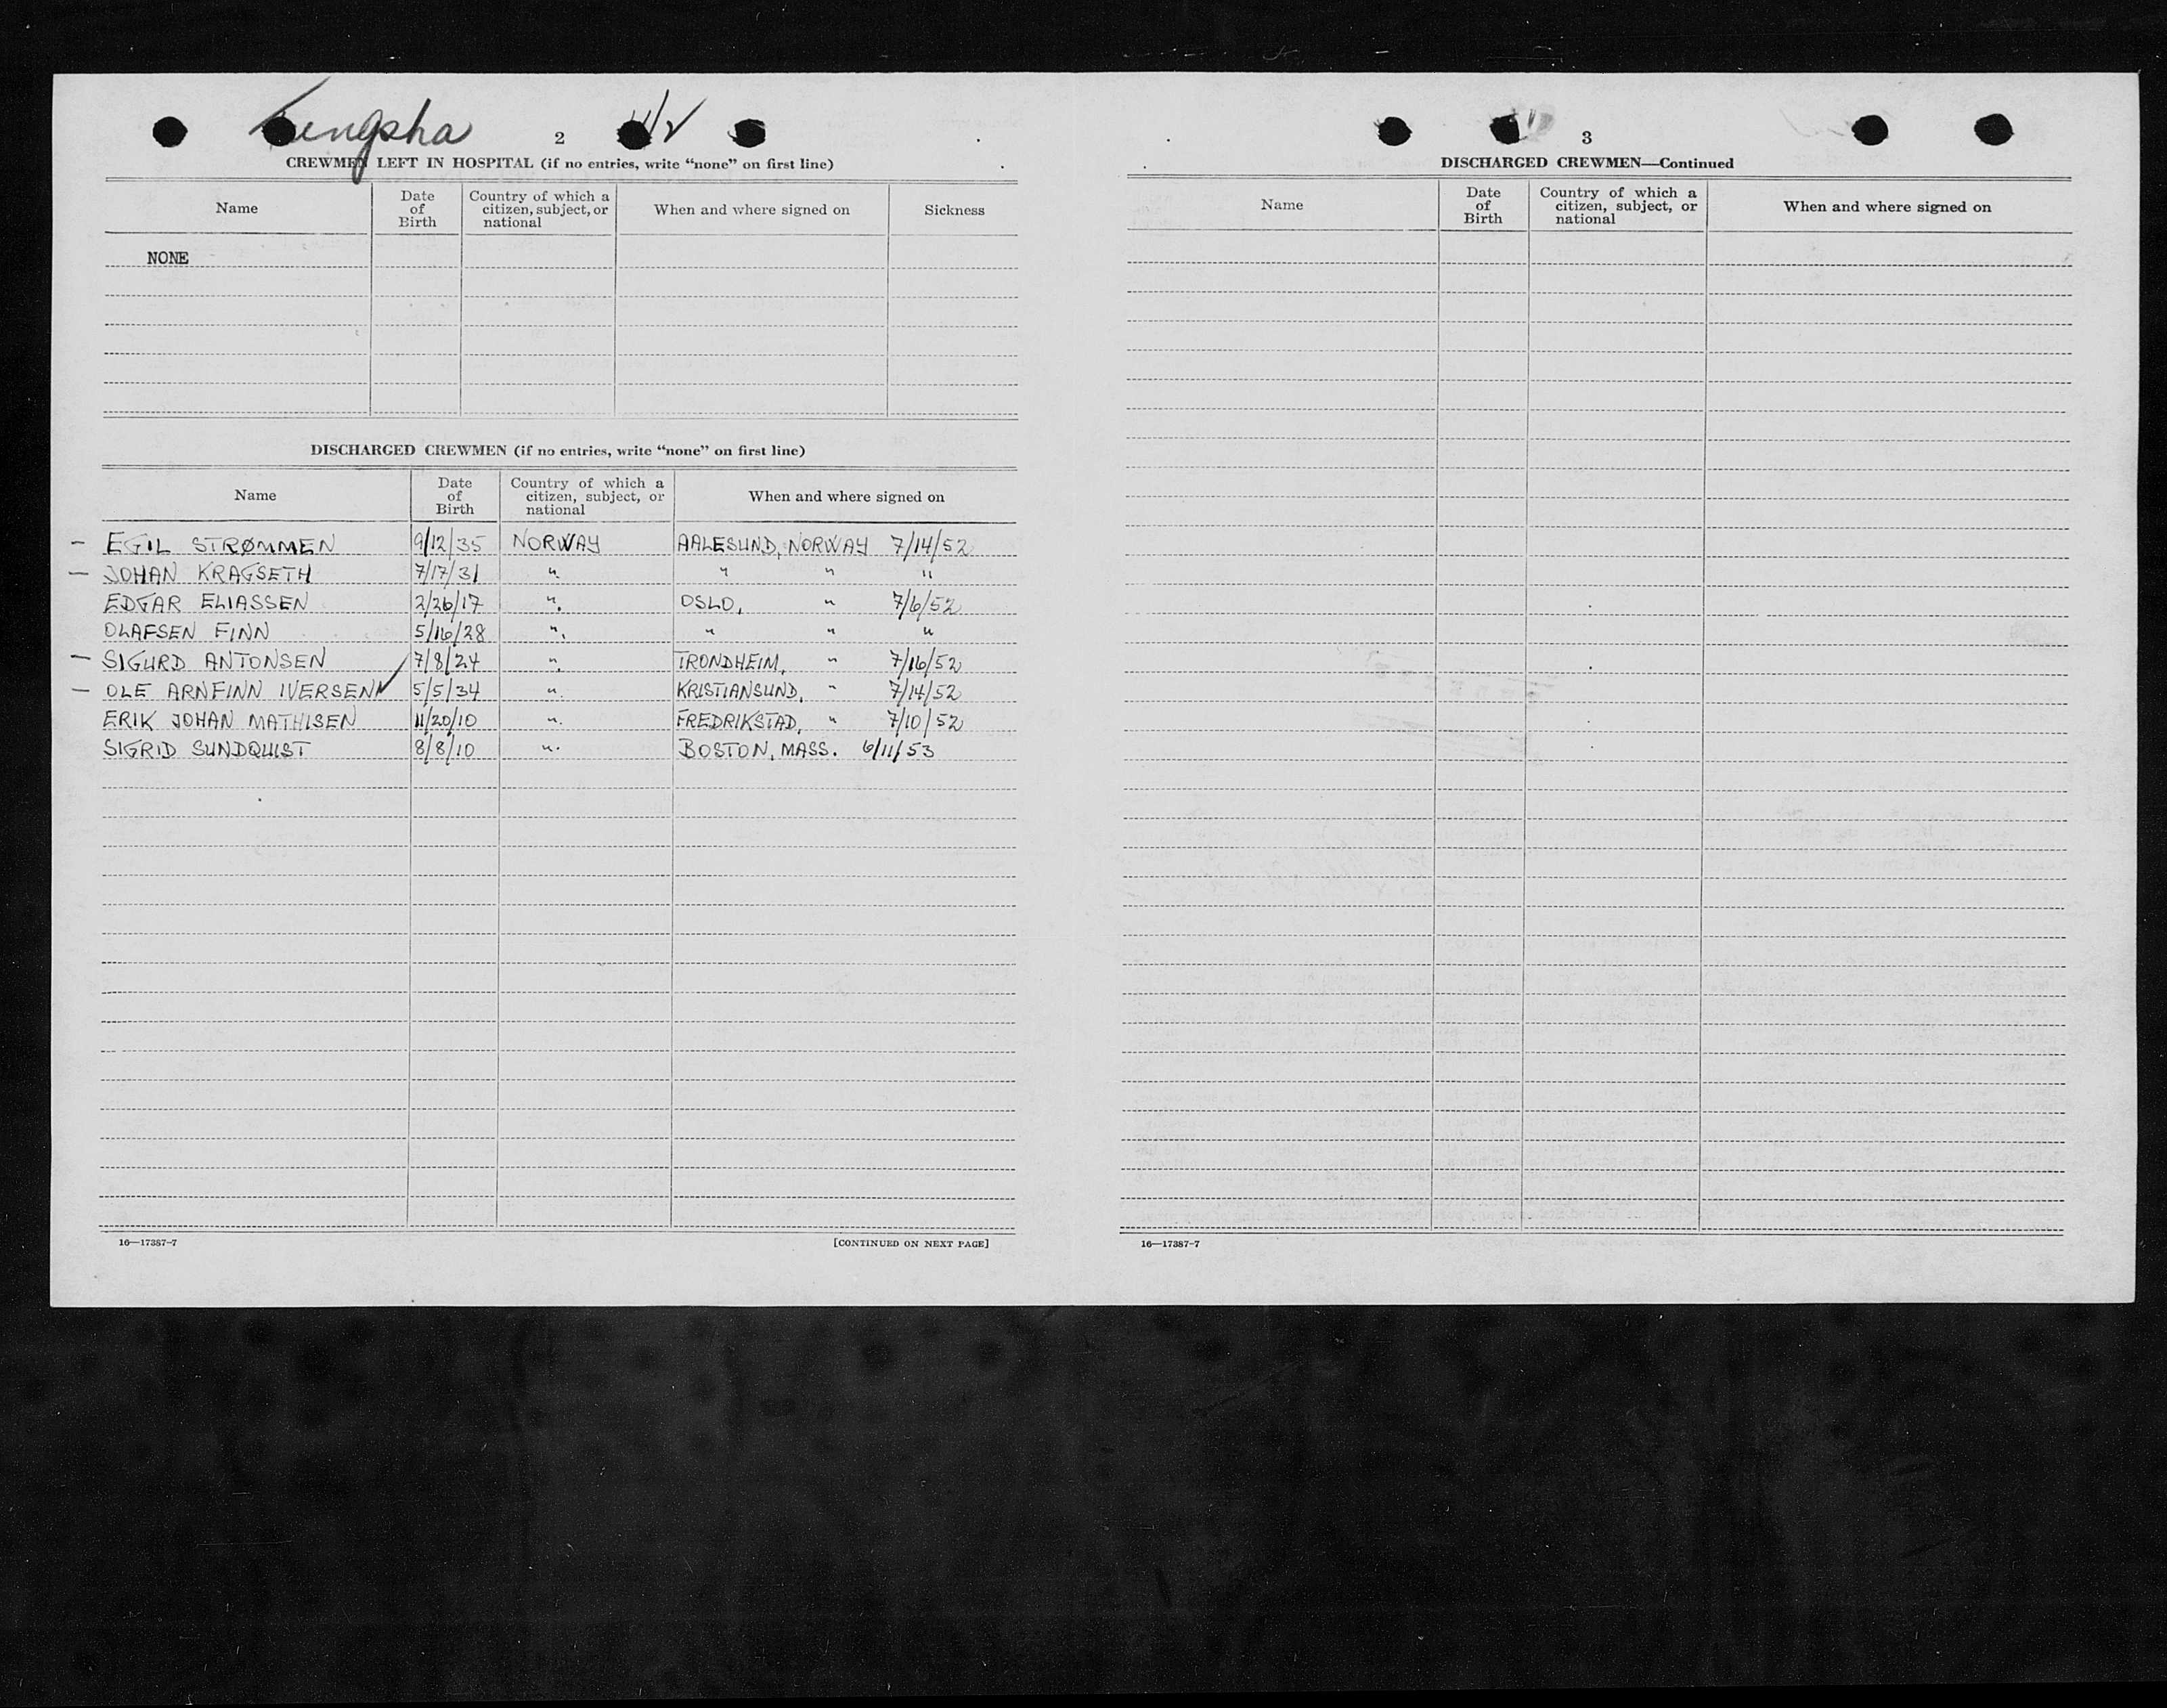 Fengsha
2
CREWMEN LEFT IN HOSPITAL (if no entries, write “none” on first line)
Name Date of Birth Country of which a citizen, subject, or national When and where signed on Sickness
NONE
DISCHARGED CREWMEN (if no entries, write “none” on first line)
Name Date of Birth Country of which a citizen, subject, or national When and where signed on
- EGIL STRØMMEN 9/12/35 NORWAY AALESUND, NORWAY 7/14/52
- JOHAN KRAGSETH 7/17/31 " " " "
EDGAR ELIASSEN 2/26/17 " OSLO, " 7/6/52
OLAFSEN FINN 5/16/28 " " " "
- SIGURD ANTONSEN 7/8/24 " TRONDHEIM, " 7/16/52
- OLE ARNFINN IVERSEN 5/5/34 " KRISTIANSUND, " 7/14/52
ERIK JOHAN MATHISEN 11/20/10 " FREDRIKSTAD, " 7/10/52
SIGRID SUNDQUIST 8/8/10 " BOSTON, MASS. 6/11/53
16—17387-7 [CONTINUED ON NEXT PAGE]
3
DISCHARGED CREWMEN—Continued
Name Date of Birth Country of which a citizen, subject, or national When and where signed on
16—17387-7